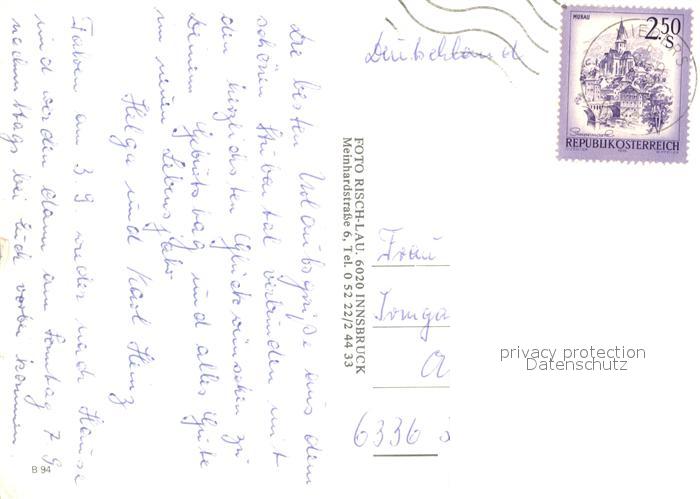 Die besten Urlaubsgrüße aus dem
schönen Stubaital verbinden mit
den herzlichsten Glückwünschen zu
Deinem Geburtstag und alles Gute
im neuen Lebensjahr
Helga und Karl Heinz
Fahren am 3.9. wieder nach Hause
und werden dann am Sonntag 7.9.
nachmittags bei Euch vorbei kommen.
B 94
FOTO RISCH-LAU, 6020 INNSBRUCK
Meinhardstraße 6, Tel. 0 52 22/2 44 33
Deutschland
MURAU
2.50
S
REPUBLIK ÖSTERREICH
Frau
Irmga
6336
privacy protection
Datenschutz